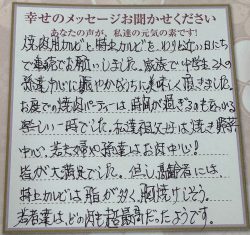 幸せのメッセージお聞かせください
あなたの声が、私達の元気の素です!
焼肉用カルビと特上カルビを、わりと近い日たち
で連続でお願いしました。家族で中学生2人の
孫達中心に賑やかなうちに美味しく頂きました。
お庭での焼肉パーティーは、時間が過ぎるのもあっから
楽しい一時でした。私達祖父母は焼き野菜
中心、若夫婦や孫達はお肉中心!
皆が大満足でした。但し高齢者には
特上カルビは脂が多く、胸焼けしそう。
若者達は、どの肉も超最高だったようです。